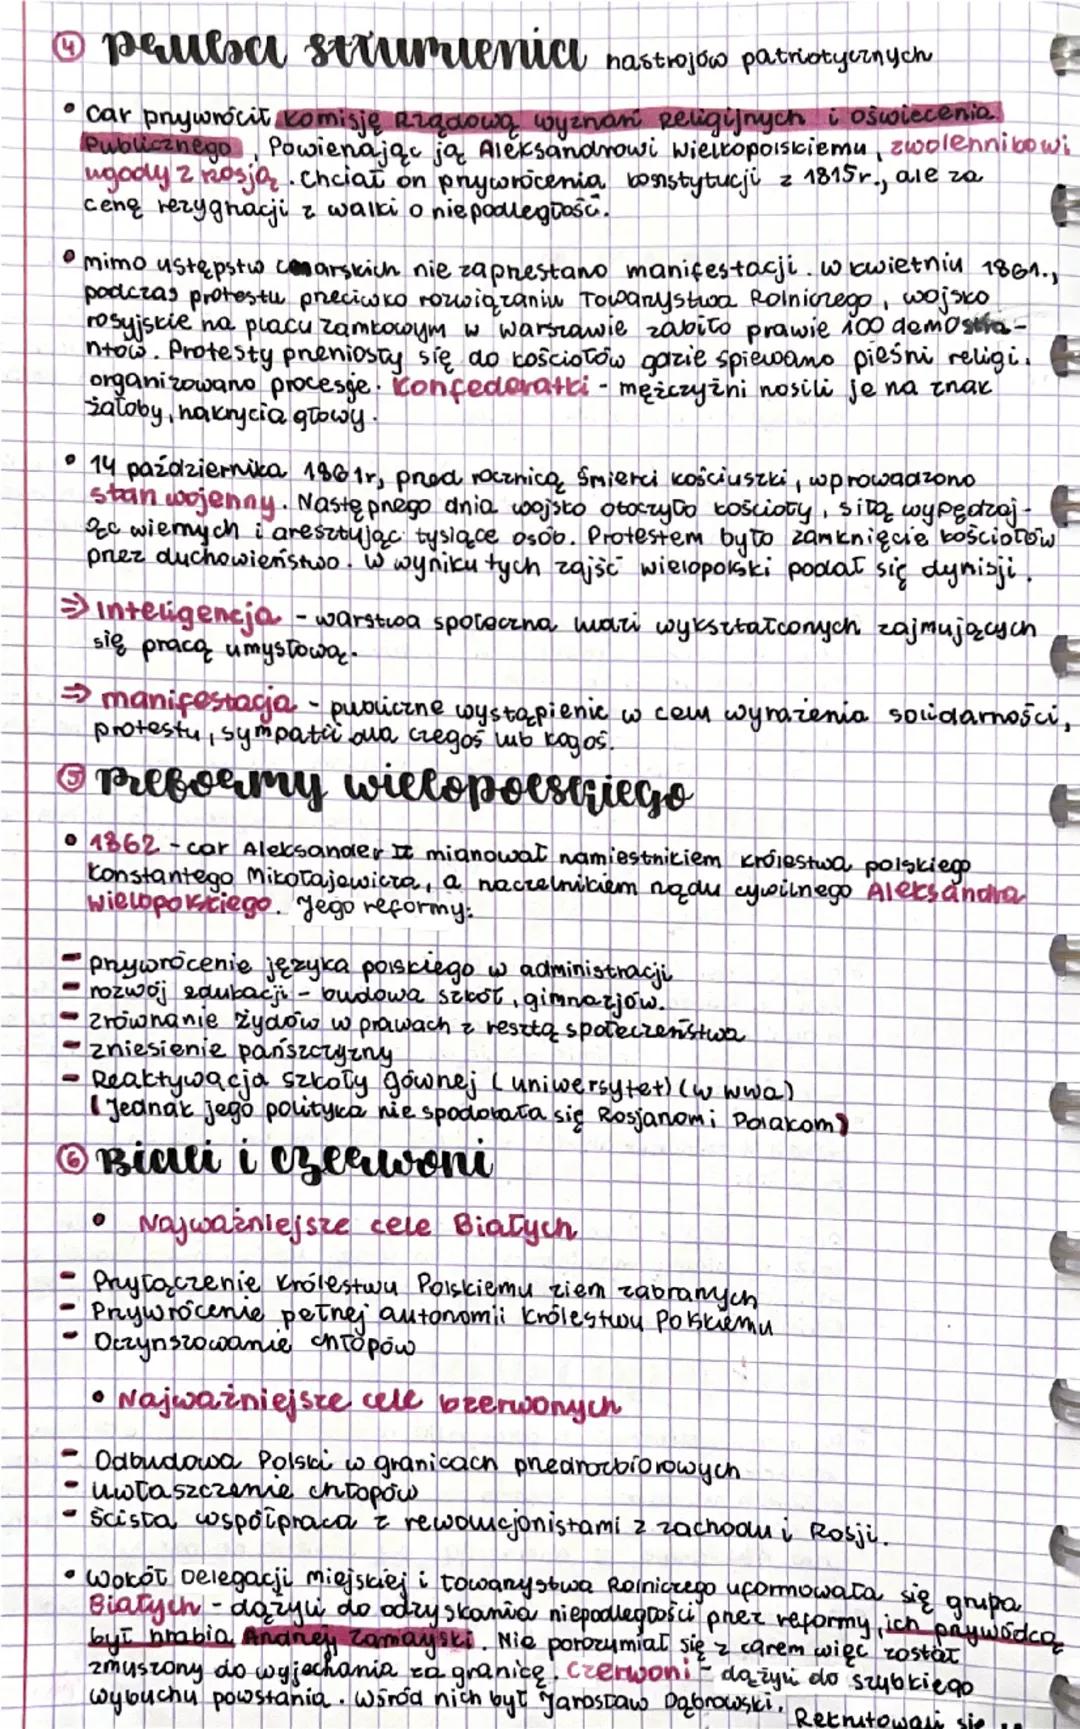 ④ próba stłumienia nastrojów patriotycznych
• car przywrócił Komisję Rządową wyznań Religijnych i oświecenia
Publicznego, Powierzając ją Aleksandrowi Wielkopolskiemu, zwolennikowi
ugody z rosją. Chciał on przywrócenia konstytucji z 1815r., ale za
cenę rezygnacji z walki o niepodległość.
• mimo ustępstw carskich nie zaprzestano manifestacji. w kwietniu 1861.,
podczas protestu przeciwko rozwiązaniu Towarzystwa Rolniczego, wojsko
rosyjskie na placu zamkowym w warszawie zabiło prawie 100 demostra-
ntów. Protesty przeniosły się do kościołów gdzie śpiewano pieśni religi.
organizowano procesje. Konfederatki - mężczyźni nosili je na znak
żałoby, nakrycia głowy.
• 14 października 1861r, przed rocznicą śmierci kościuszki, wprowadzono
stan wojenny. Następnego dnia wojsko otoczyło kościoły, siłą wypędzaj-
ąc wiernych i aresztując tysiące osób. Protestem było zamknięcie kościołów
przez duchowieństwo. W wyniku tych zajść wielopolski podał się dymisji.
⇒ inteligencja - warstwa społeczna ludzi wykształconych zajmujących
się pracą umysłową.
⇒ manifestacja - publiczne wystąpienie w celu wyrażenia solidarności,
protestu, sympatii dla czegoś lub kogoś.
⑤ reformy wielopolskiego
• 1862 - car Aleksander II mianował namiestnikiem królestwa polskiego
Konstantego Mikołajewicza, a naczelnikiem rządu cywilnego Aleksandra
wielopolskiego. Jego reformy:
- przywrócenie języka polskiego w administracji
- rozwój edukacji - budowa szkół, gimnazjów.
- zrównanie żydów w prawach z resztą społeczeństwa
- zniesienie pańszczyzny
- Reaktywacja szkoły gównej (uniwersytet) (w wwa)
(Jednak jego polityka nie spodobała się Rosjanom i Polakom)
⑥ Biali i czerwoni
• Najważniejsze cele Białych
- Przyłączenie Królestwu Polskiemu ziem zabranych
- Przywrócenie pełnej autonomii Królestwu Polskiemu
- Oczynszowanie chłopów
• Najważniejsze cele czerwonych
- Odbudowa Polski w granicach przedrozbiorowych
- uwłaszczenie chłopów
- ścisła współpraca z rewolucjonistami z zachodu i Rosji.
• Wokół Delegacji miejskiej i towarzystwa Rolniczego uformowała się grupa
Białych - dążyli do odzyskania niepodległości przez reformy, ich przywódcą
był hrabia Andrzej Zamayski. Nie porozumiał się z carem więc został
zmuszony do wyjechania za granicę. Czerwoni - dążyli do szybkiego
wybuchu powstania. Wśród nich był Jarosław Dąbrowski.
Rekrutowali się